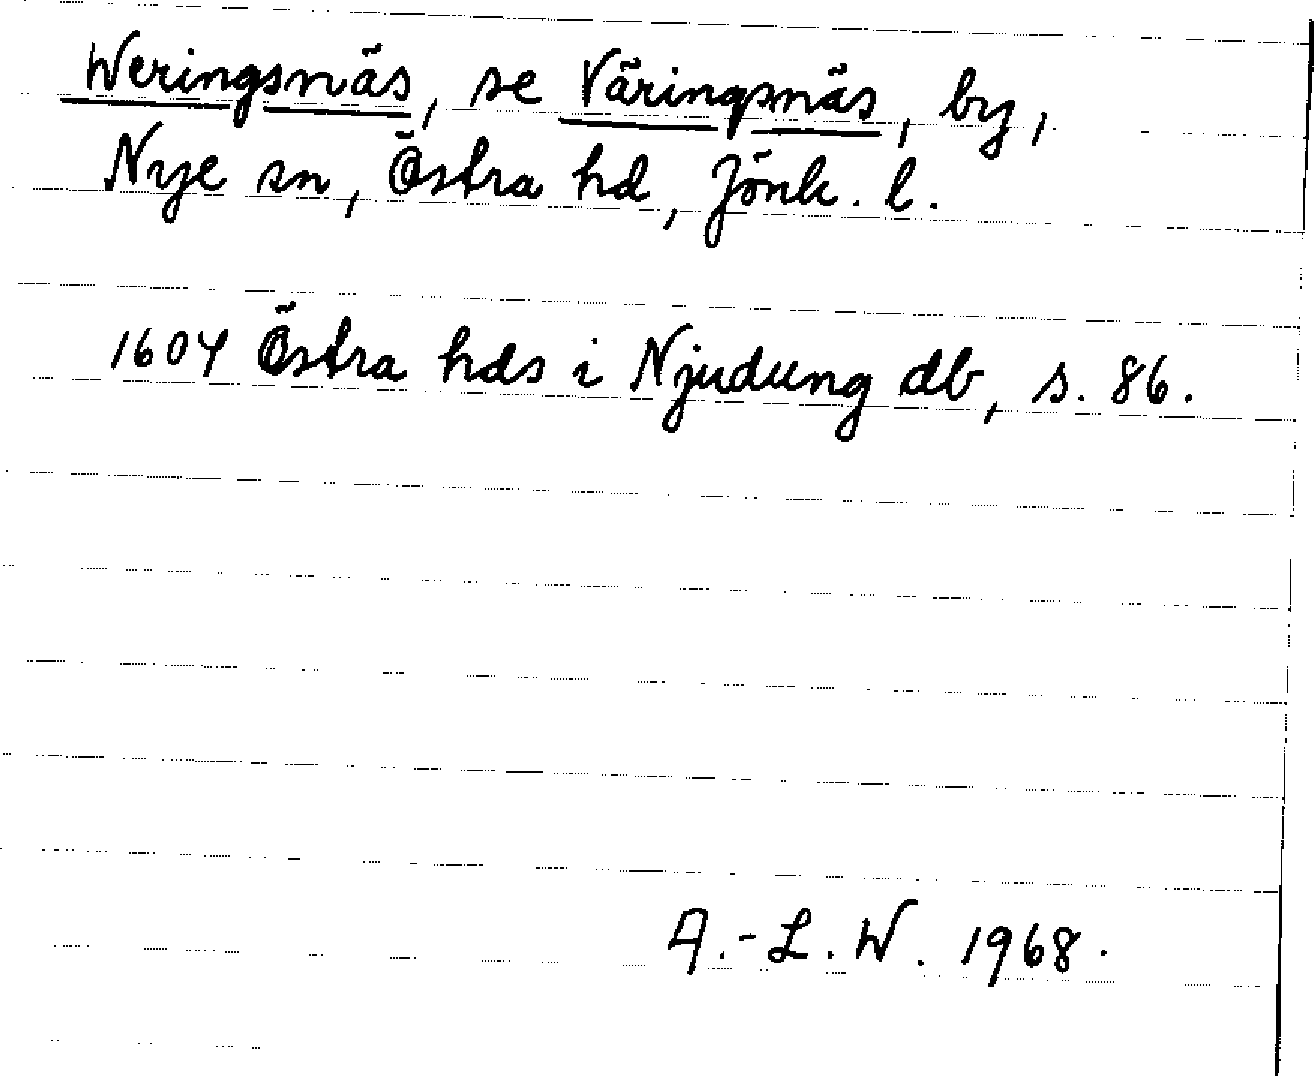 Weringsnäs, se Väringsnäs, by,
Nye sn, Östra hd, Jönk. l.
1604 Östra hds i Njudung db, s. 86.
A.-L. W. 1968.